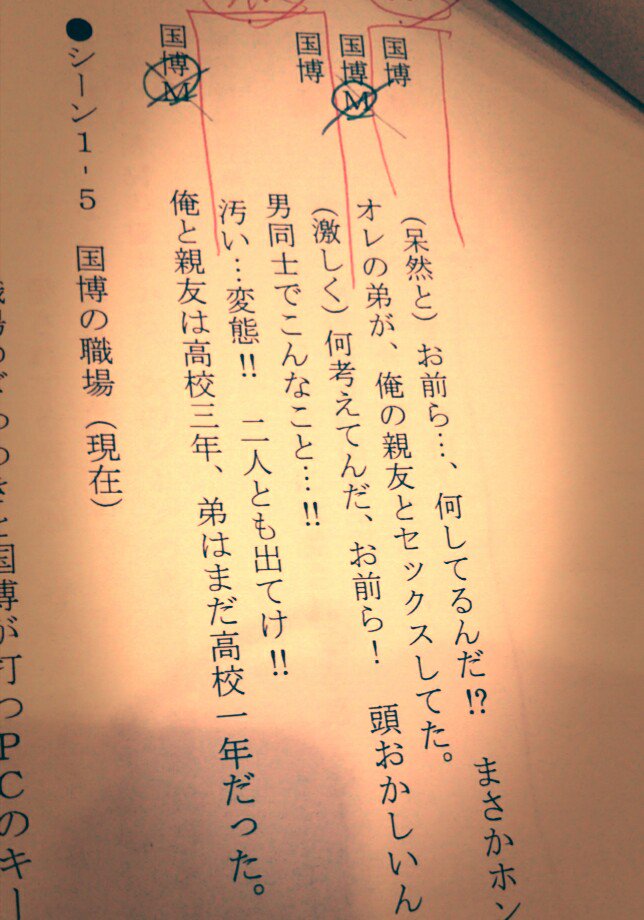 国博 （呆然と）お前ら…、何してるんだ!? まさかホン
国博M オレの弟が、俺の親友とセックスしてた。
国博 （激しく）何考えてんだ、お前ら！ 頭おかしいん
男同士でこんなこと…!!
汚い…変態!! 二人とも出てけ!!
国博M 俺と親友は高校三年、弟はまだ高校一年だった。
●シーン1-5 国博の職場（現在）
と国博が打つPCのキー